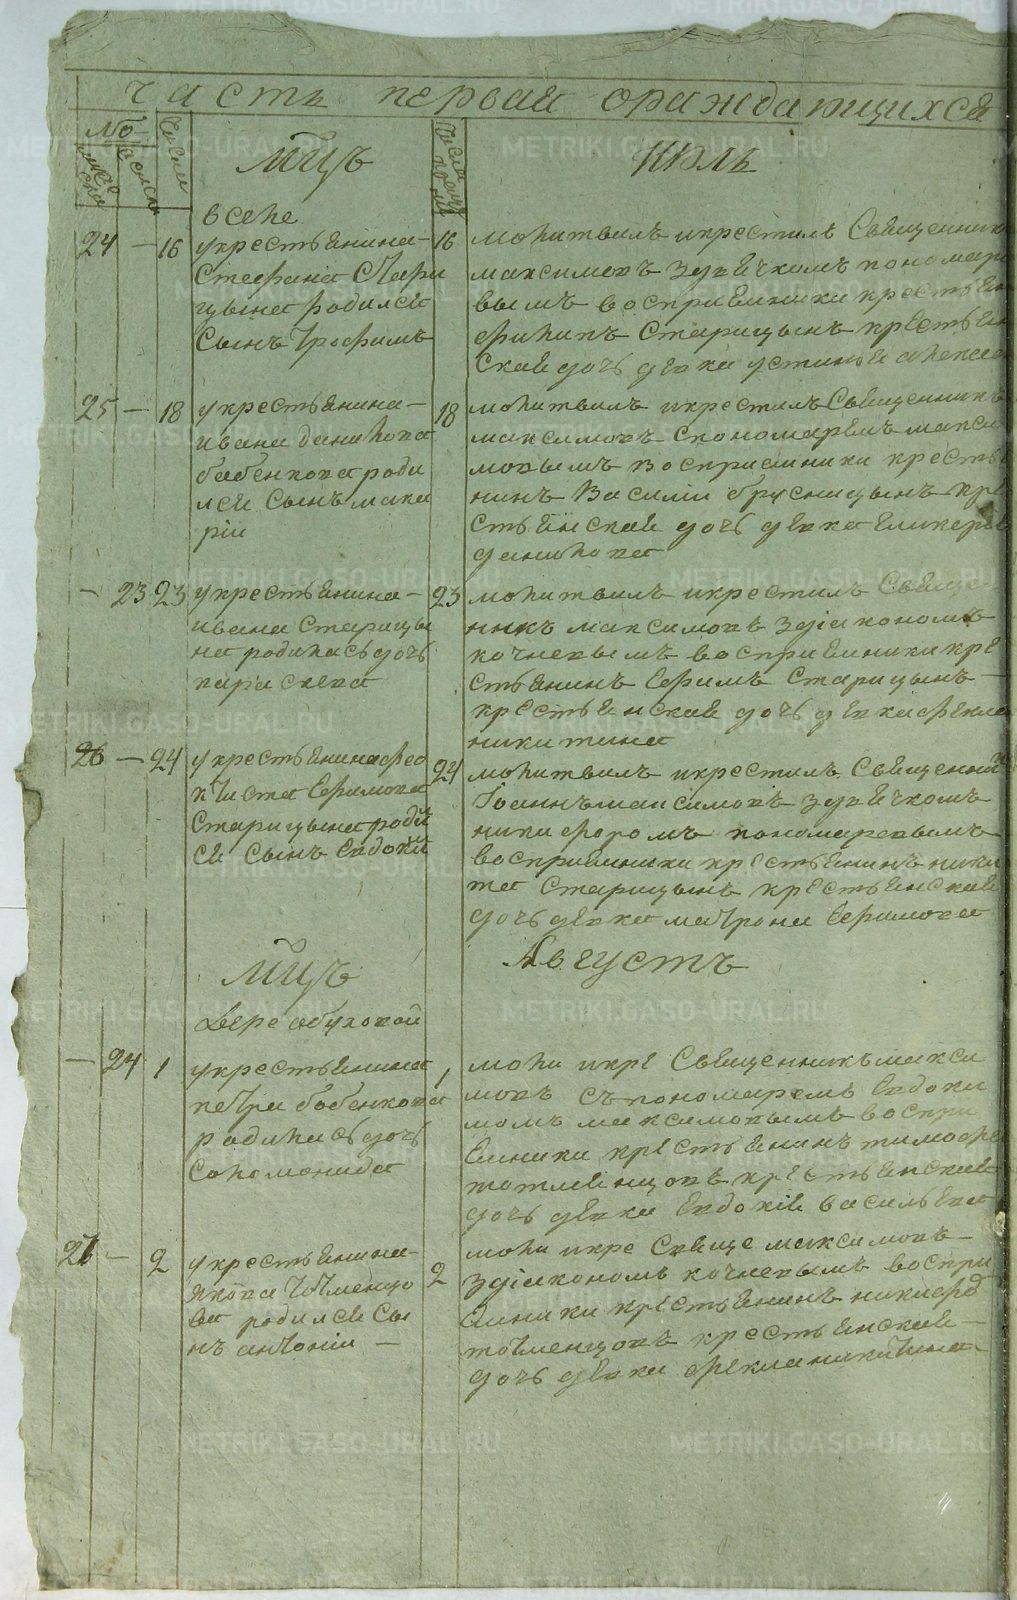 часть первая ораждающихся
№
мужеска
женска
Числа
Мцъ
Числа крещения
Июль
в селе
24 — 16
у крестьянина
Стефана Стари
цына родился
Сынъ Трофимъ
16
молитвилъ и крестилъ Священник
максимовъ з дьячкомъ пономаре
вымъ восприемники крестьян
филипъ Старицынъ крестьян
ская дочь девка устинья алексе
25 — 18
у крестьянина
ивана данилова
бабенкова роди
лся Сынъ мака
рiи
18
молитвилъ и крестилъ Священникъ
максимовъ с пономаремъ макси
мовымъ восприемники крестья
нинъ Василiи брусницынъ кре
стьянская дочь девка гликерия
данилова
— 23 23
у крестьянина
ивана Старицы
на родилась дочь
параскева
23
молитвилъ и крестилъ Свяще
нникъ максимовъ з дiякономъ
кочневымъ восприемники кре
стьянинъ Ефимъ Старицынъ
крестьянская дочь девка фекла
никитина
26 — 24
у крестьянина фео
ктиста Ефимова
Старицына родил
ся Сынъ Евдоким
24
молитвилъ и крестилъ Священник
Iоаннъ максимовъ з дьячкомъ
никифоромъ пономаревымъ
восприемники крестьянинъ ники
та Старицынъ крестьянская
дочь девка матрона Ефимова
Мцъ
Августъ
Дере обуховой
— 24 1
у крестьянина
петра бабенкова
родилась дочь
Соломонида
1
моли и кре Священникъ макси
мовъ съ пономаремъ Евдоки
момъ максимовымъ воспри
емники крестьянинъ тимофе
тотменцовъ крестьянская
дочь девка Евдокiя васильева
27 — 2
у крестьянина
якова тотменцо
ва родился Сы
нъ антонiи —
2
моли и кре Свяще максимовъ
з дiякономъ кочневымъ воспри
емники крестьянинъ никифор
тотменцовъ крестьянская
дочь девка фекла никитина